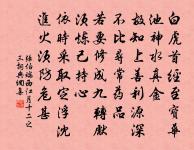 白虎首經至寶華
池神水真金
故知上善利源深
不比尋常藥品
若要修成九轉先
須煉己持心
依時采取定浮沉
進火須防危甚
張伯端西江月十二之
三詞